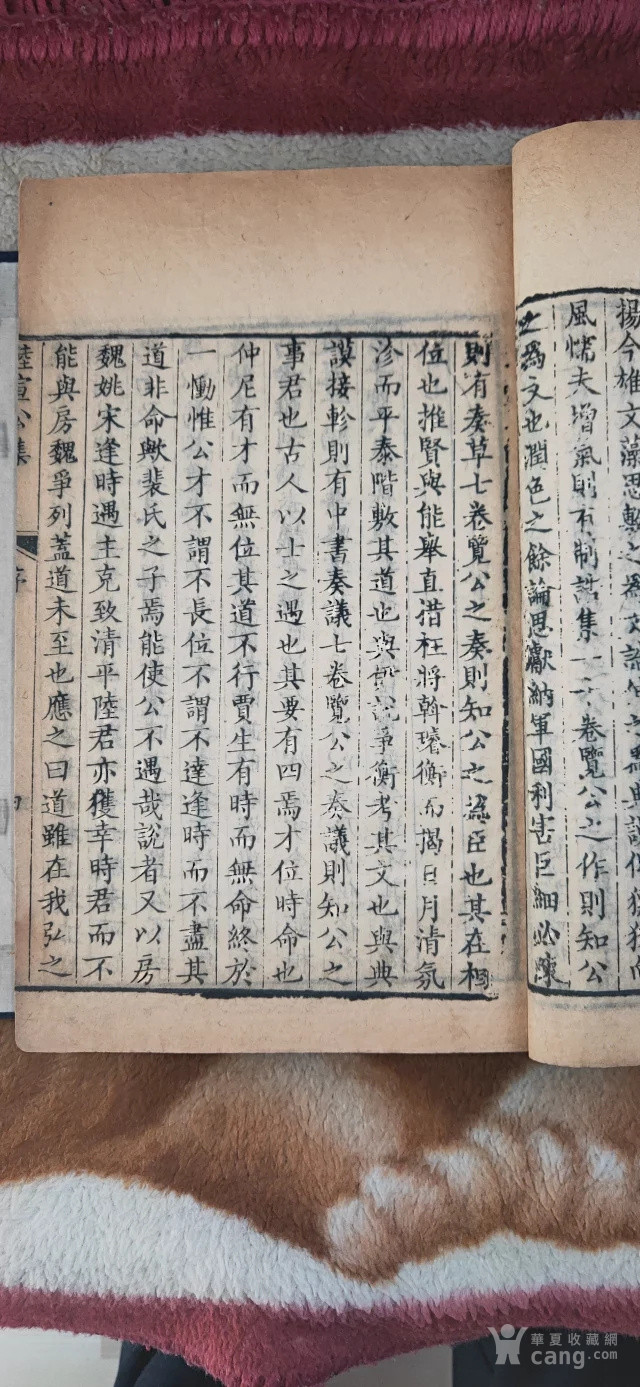 揚今雄文藻思敷之爲文誥
風懦夫增氣則有制誥集一十卷覽公之作則知公
之爲文也潤色之餘論思獻納軍國利害巨細必陳
則有奏草七卷覽公之奏則知公之爲臣也其在相
位也推賢與能舉直措枉將斡璿衡而揭日月清氛
沴而平泰階敷其道也與伊說爭衡考其文也與典
謨接軫則有中書奏議七卷覽公之奏議則知公之
事君也古人以士之遇也其要有四焉才位時命也
仲尼有才而無位其道不行賈生有時而無命終於
一慟惟公才不謂不長位不謂不達逢時而不盡其
道非命歟裴氏之子焉能使公不遇哉說者又以房
魏姚宋逢時遇主克致清平陸君亦獲幸時君而不
能與房魏爭列蓋道未至也應之曰道雖在我弘之
陸宣公集 序
華夏收藏網
cang.com